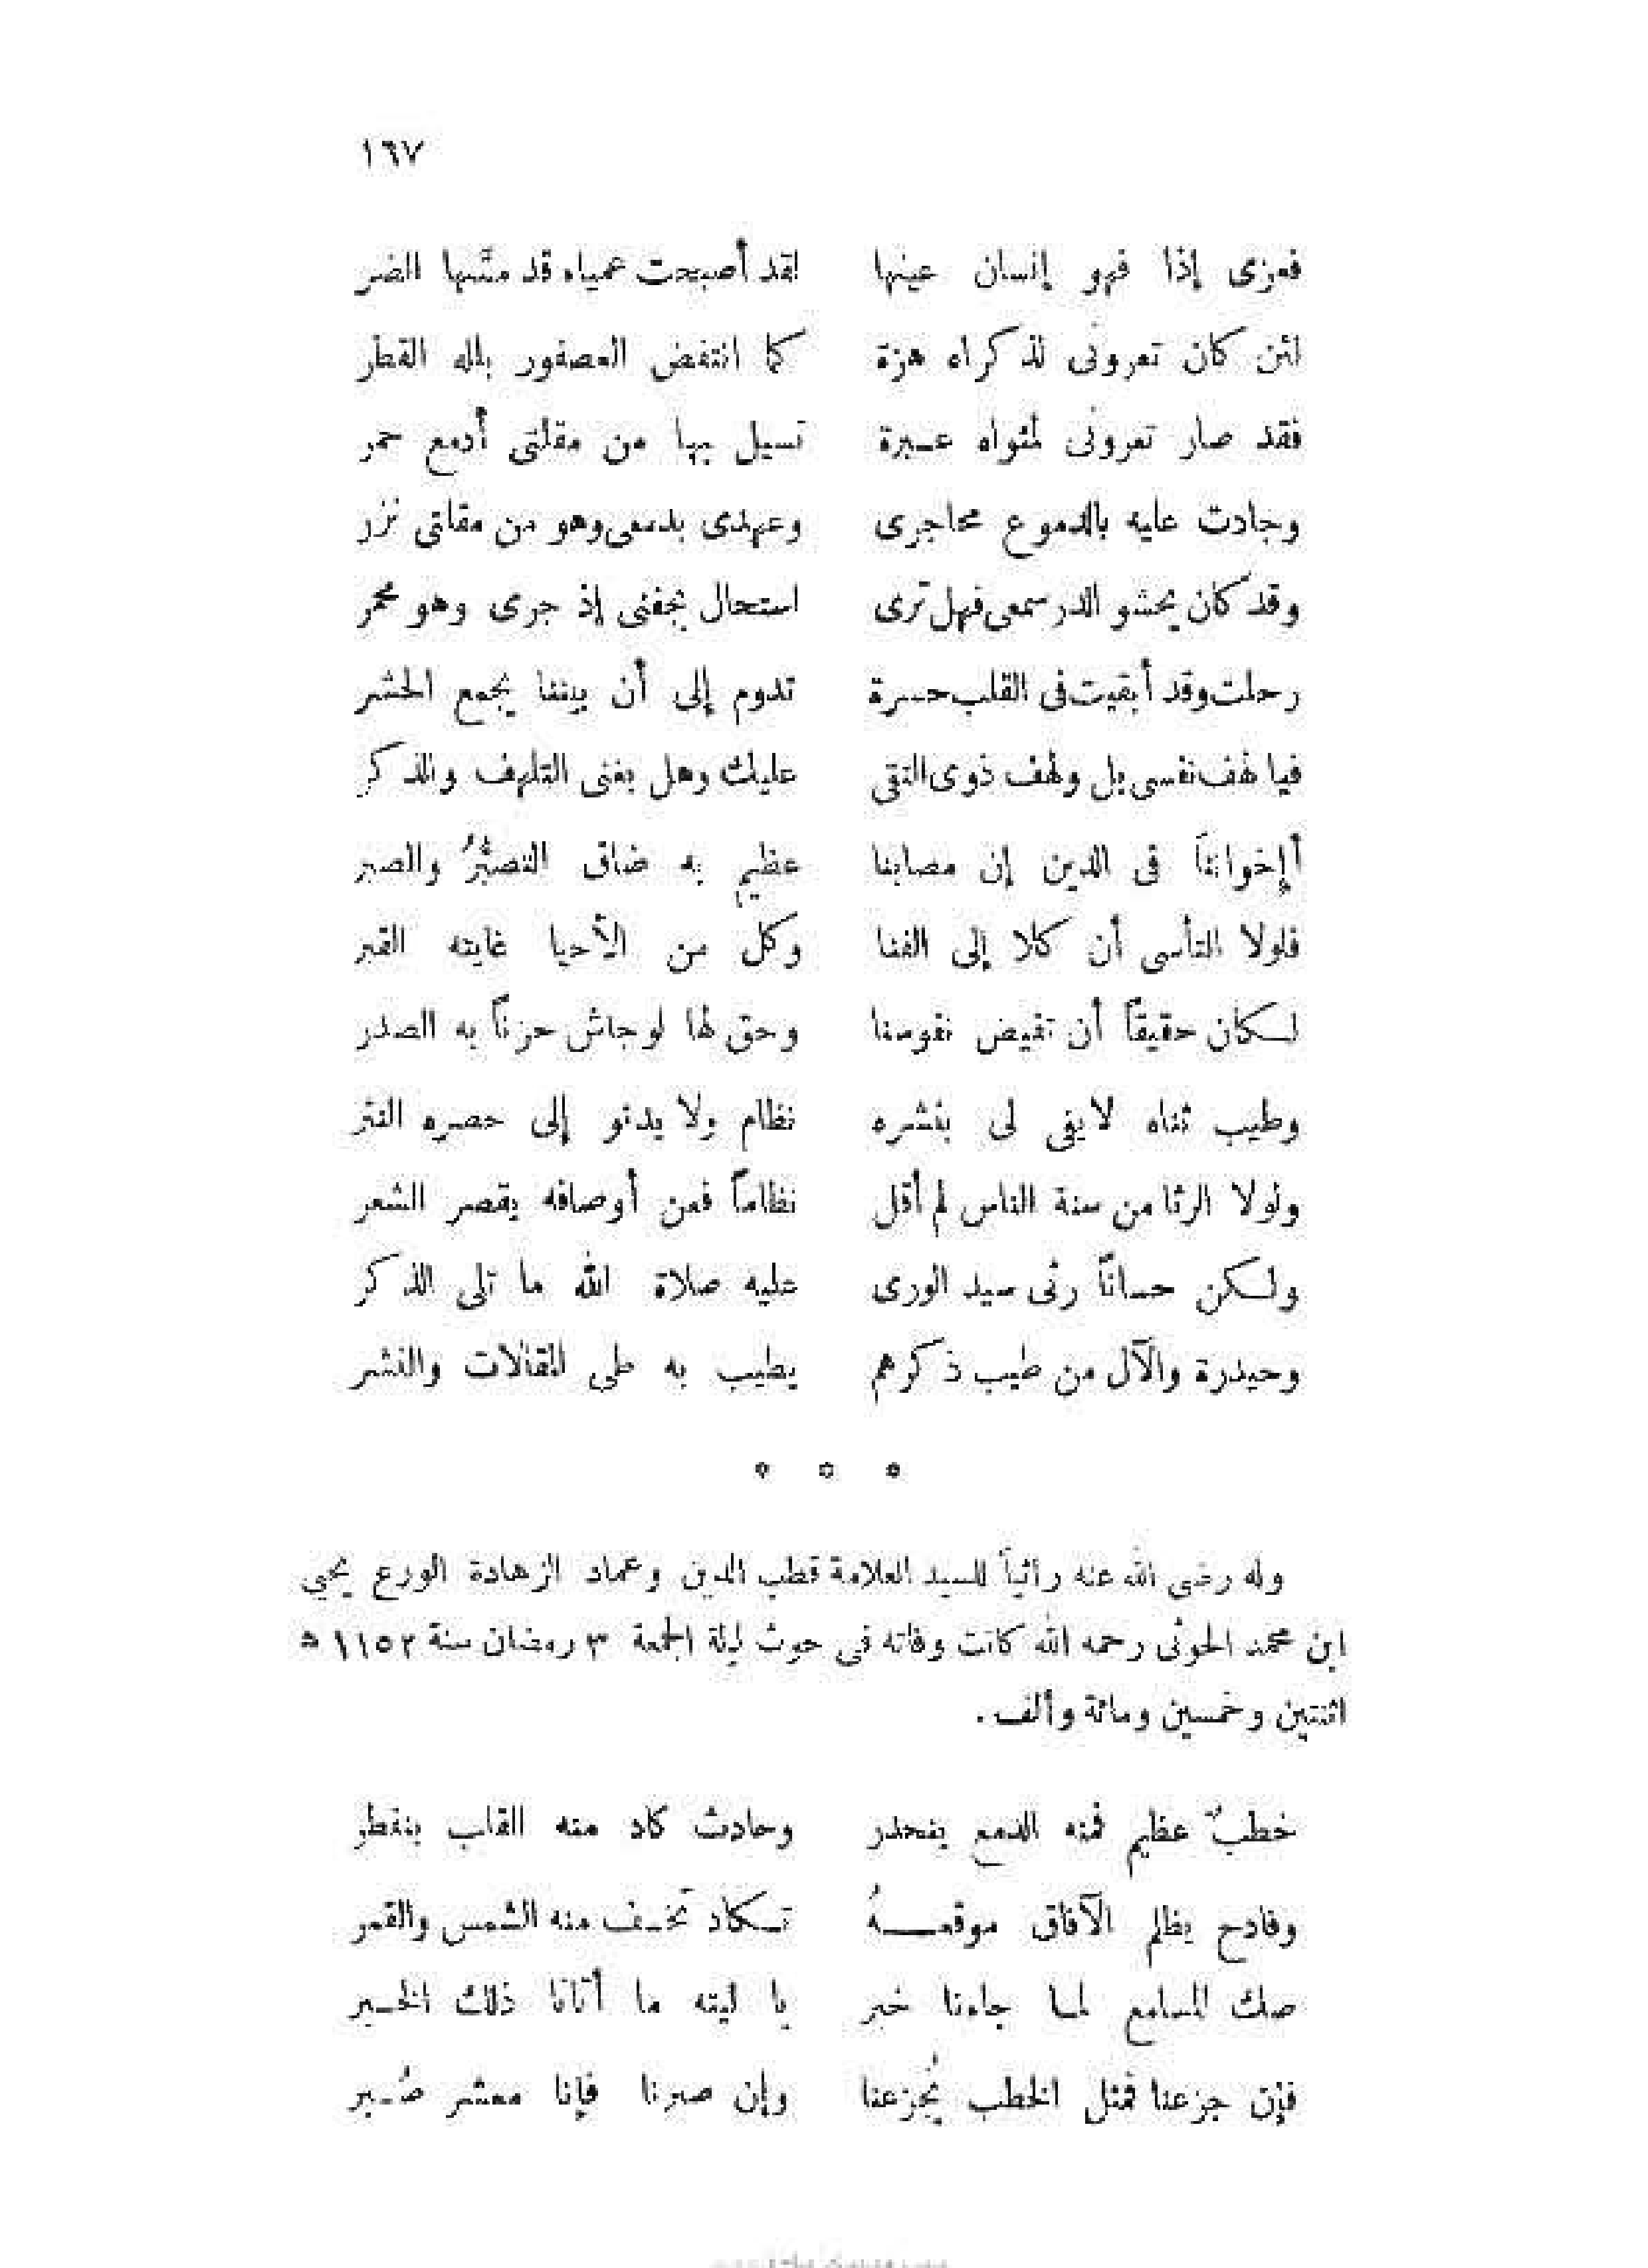 ١٦٧
فعزى إذا فهو إنسان عينها لقد أصبحت عمياء قد مسّها الضر
لئن كان تعرونى لذكراه هزة كما انتفض العصفور بلله القطر
فقد صار تعرونى لمثواه عبرة تسيل بها من مقلتى أدمع حمر
وجادت عليه بالدموع محاجرى وعهدى بدمعى وهو من مقلتى نزر
وقد كان يحشو الدر سمعى فهل ترى استحال بجفنى إذ جرى وهو محمر
رحلت وقد أبقيت فى القلب حسرة تدوم إلى أن بيننا يجمع الحشر
فيا لهف نفسى بل ولهف ذوى التقى عليك وهل يغنى التلهف والذكر
أإخواننا فى الدين إن مصابنا عظيم به ضاق التصبُّرُ والصبر
فلولا التأسى أن كلا إلى الفنا وكل من الأحيا غايته القبر
لكان حقيقاً أن تفيض نفوسنا وحق لها لو جاش حزناً به الصدر
وطيب ثناه لا يفى لى بنشره نظام ولا يدنو إلى حصره النثر
ولولا الرثا من سنة الناس لم أقل نظاماً فعن أوصافه يقصر الشعر
ولكن حساناً رثى سيد الورى عليه صلاة الله ما تلى الذكر
وحيدرة والآل من طيب ذكرهم يطيب به طى المقالات والنشر
وله رضى الله عنه راثياً للسيد العلامة قطب الدين وعماد الزهادة الورع يحيى
ابن محمد الحوثى رحمه الله كانت وفاته فى حوث ليلة الجمعة ٣ رمضان سنة ١١٥٢ ه
اثنتين وخمسين ومائة وألف .
خطبٌ عظيم فمنه الدمع ينحدر وحادث كاد منه القلب ينفطر
وفادح يظلم الآفاق موقعـــهُ تكاد تخسف منه الشمس والقمر
صك المسامع لما جاءنا خبر يا ليته ما أتانا ذلك الخبر
فإن جزعنا فمثل الخطب يُجزعنا وإن صبرنا فإنا معشر صُبر